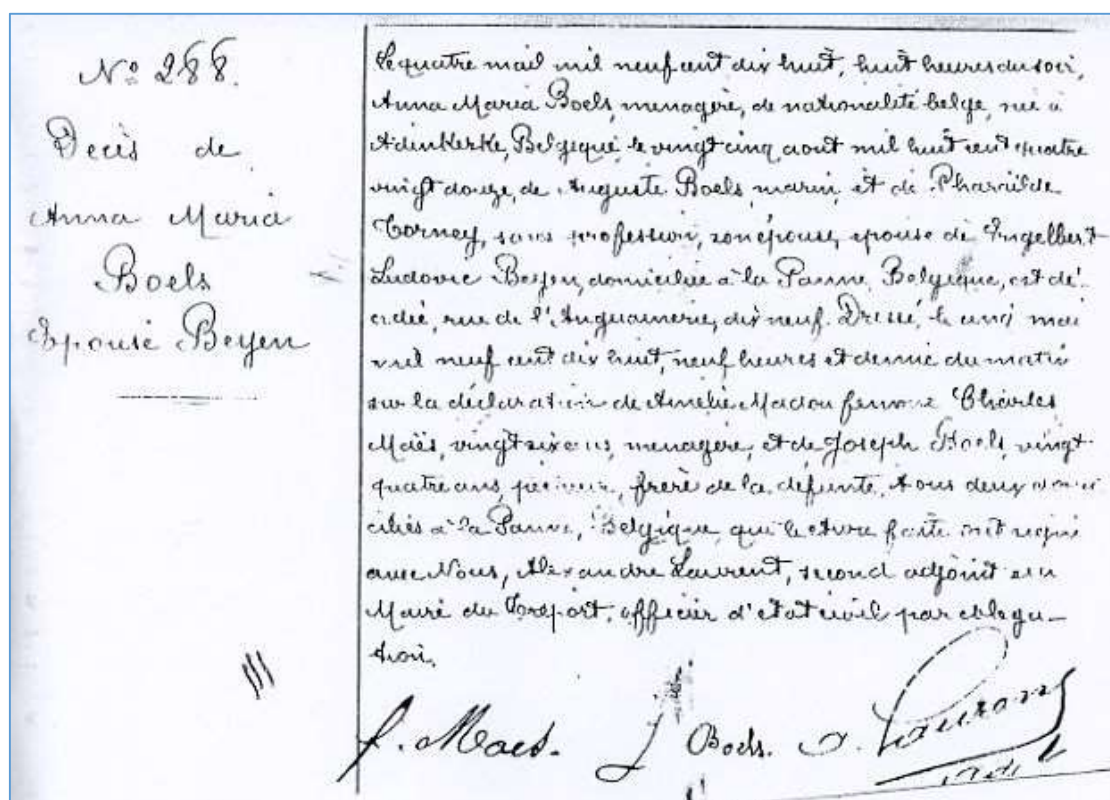 Nº 288.
Decès de
Anna Maria
Boels
Epouse Beyen
Le quatre mail mil neuf cent dix huit, huit heures du soir,
Anna Maria Boels, menagère, de nationalité belge, née à
Adinkerke, Belgique, le vingt cinq aout mil huit cent quatre
vingt douze, de Auguste Boels, marin, et de Pharaïlde
Torney, sans profession, son épouse, epouse de Engelbert
Ludovic Beyen, domiciliée à la Panne, Belgique, est dé-
cédée, rue de l'Anguainerie, dix neuf. Dressé, le cinq mai
mil neuf cent dix huit, neuf heures et demie du matin
sur la déclaration de Amélie Madou femme Charles
Maës, vingt six ans, menagère, et de Joseph Boels, vingt
quatre ans, frère de la défunte, tous deux domi
ciliés à la Panne, Belgique, qui lecture faite ont signé
avec Nous, Alexandre Laurent, second adjoint au
Maire du Treport, officier d'etat civil par deléga-
tion.
Maes. J Boels. A. Laurent